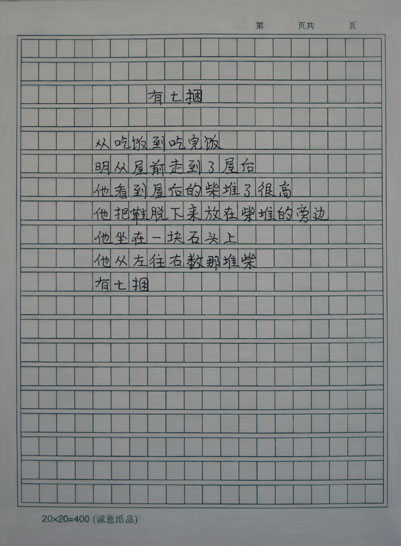 第 页共 页
有七捆
从吃饭到吃完饭
明从屋前走到了屋后
他看到屋后的柴堆了很高
他把鞋脱下来放在柴堆的旁边
他坐在一块石头上
他从左往右数那堆柴
有七捆
20×20=400 (诚意纸品)